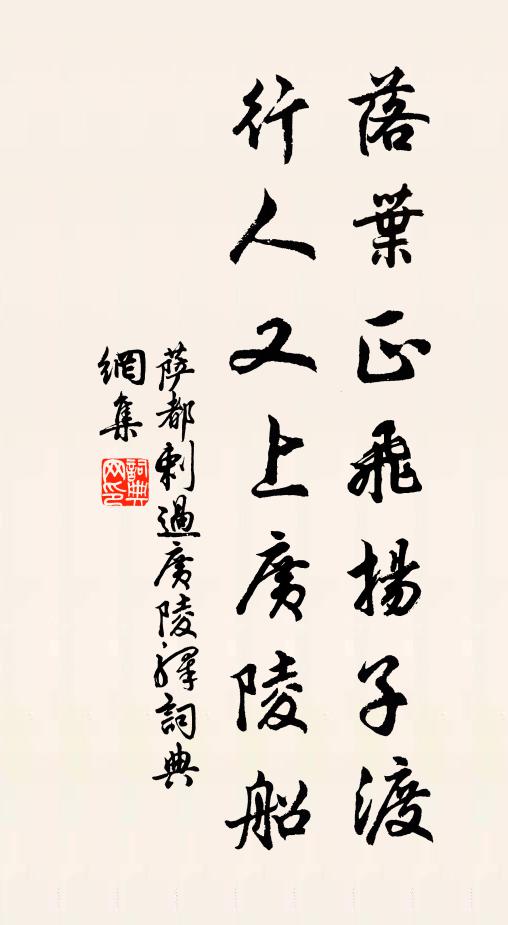 落葉正飛揚子渡
行人又上廣陵船
薩都剌過廣陵驛詞典
網集
詞典
网印